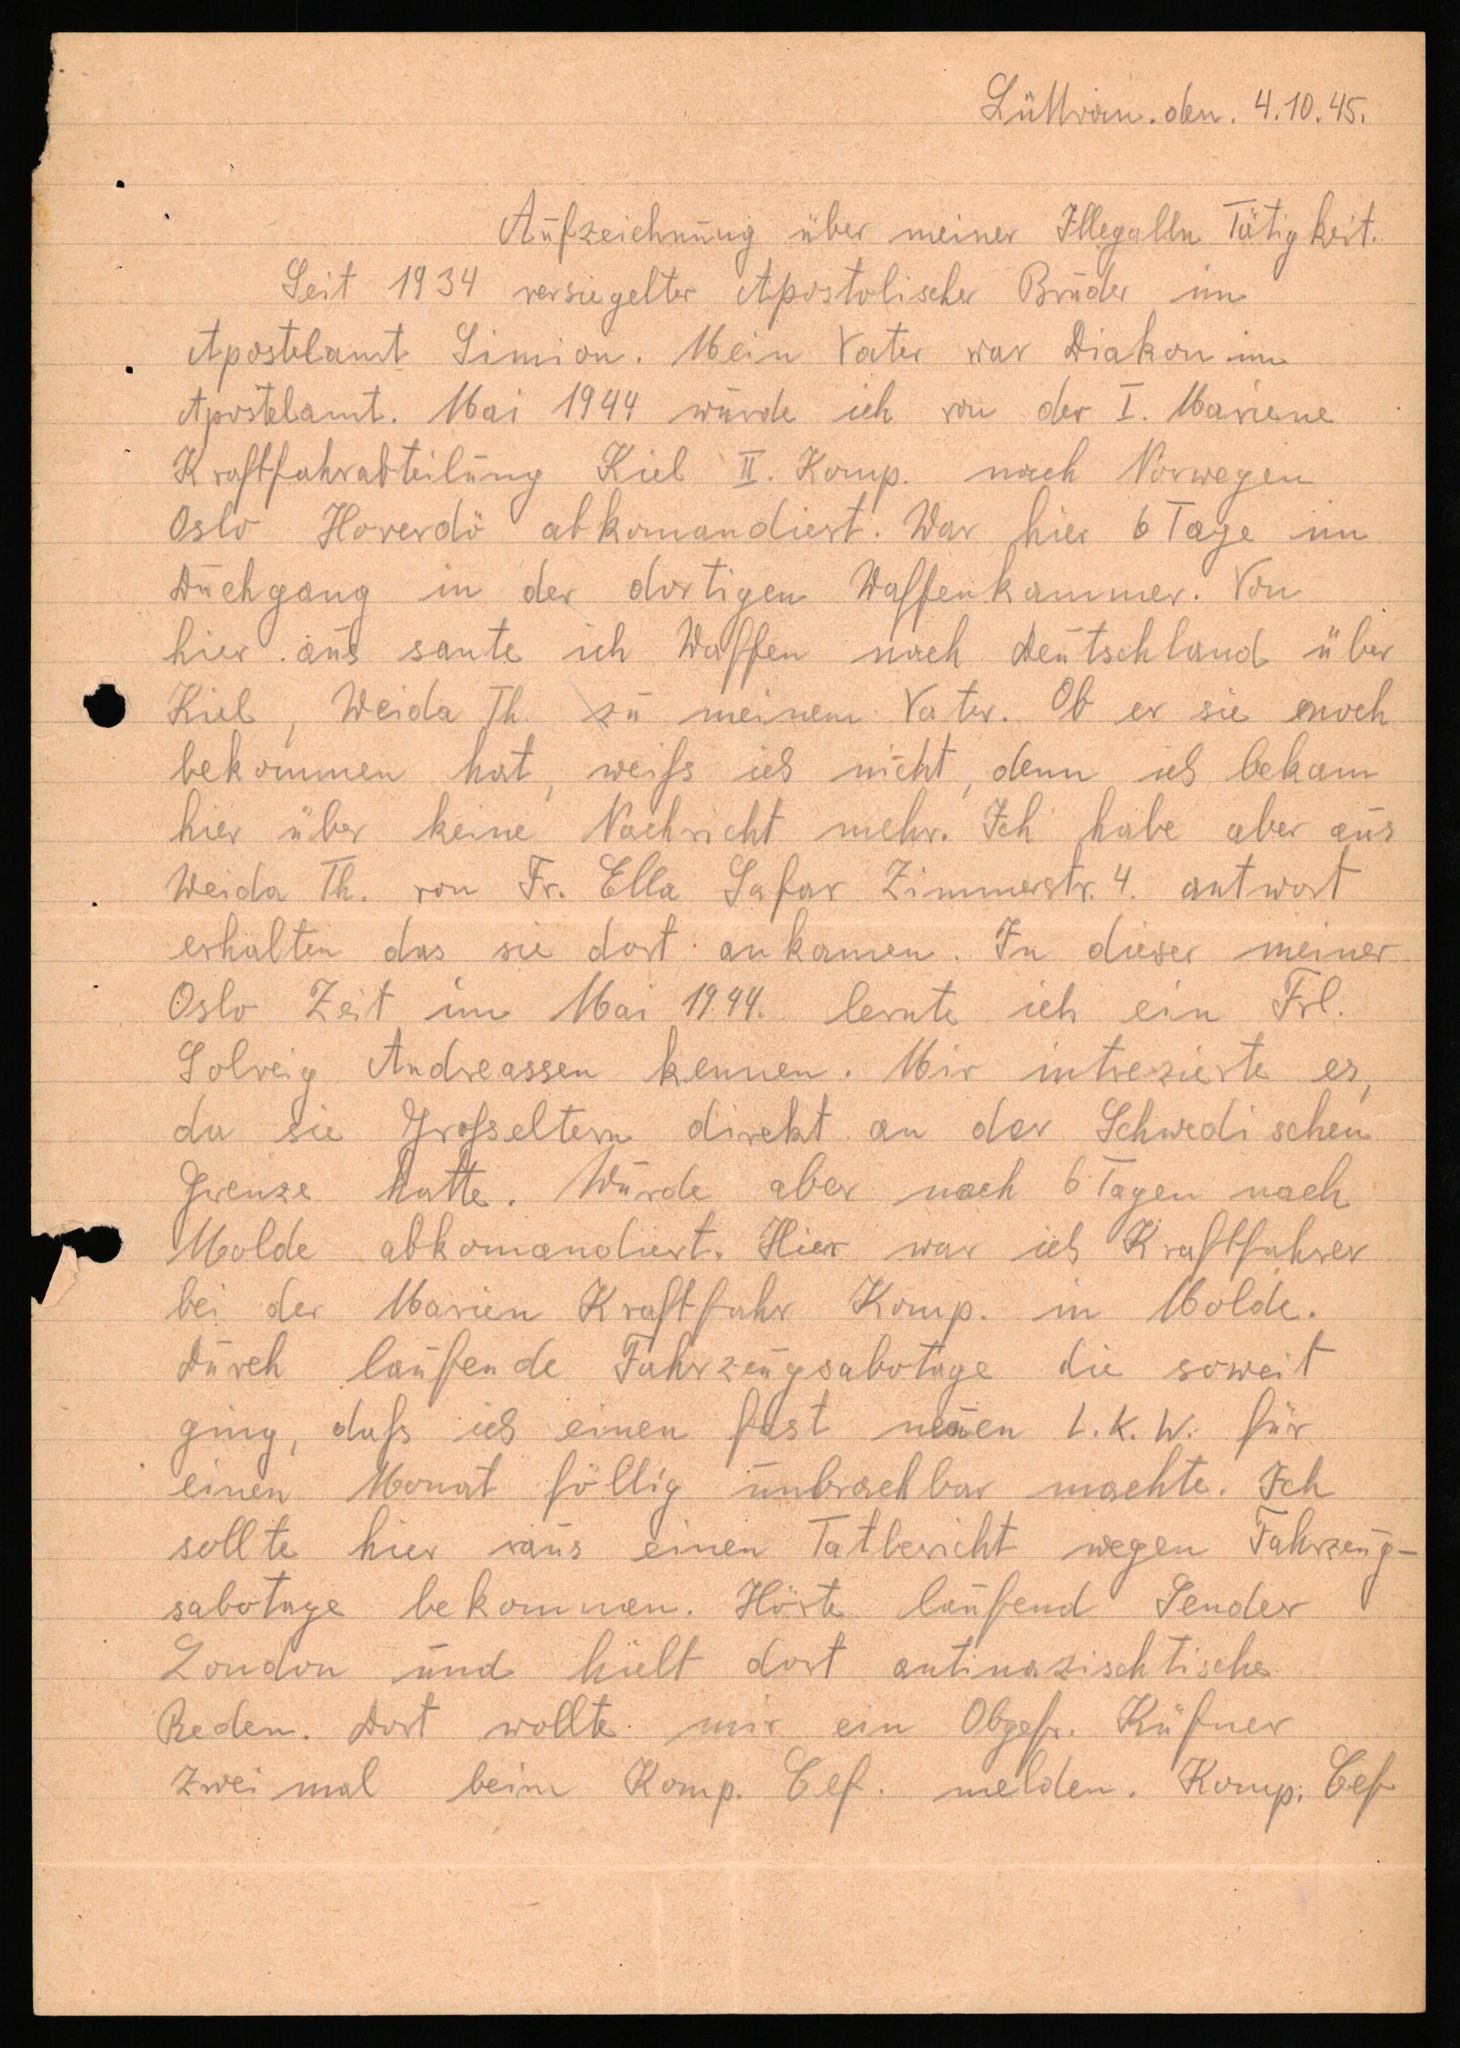 Lüttran. den. 4.10.45.
Aufzeichnung über meiner Illegalln Tätigkeit.
Seit 1934 versiegelter Apostolischer Bruder im
Apostelamt Simion. Mein Vater war Diakon im
Apostelamt. Mai 1944 wurde ich von der I. Mariene
Kraftfahrabteilung Kiel II. Komp. nach Norwegen
Oslo Hoverdö abkomandiert. War hier 6 Tage im
Duchgang in der dortigen Waffenkammer. Von
hier aus sante ich Waffen nach Deutschland über
Kiel, Weida Th. zu meinem Vater. Ob er sie noch
bekommen hat, weifs ich nicht, denn ich bekam
hier über keine Nachricht mehr. Ich habe aber aus
Weida Th. von Fr. Ella Safar Zimmerstr. 4. antwort
erhalten das sie dort ankamen. In dieser meiner
Oslo Zeit im Mai 1944. lernte ich ein Frl.
Solveig Andreassen kennen. Mir intrezierte es,
da sie Grofseltern direkt an der Schwedischen
Grenze hatte. Wurde aber nach 6 Tagen nach
Molde abkomandiert. Hier war ich Kraftfahrer
bei der Marien Kraftfahr Komp. in Molde.
Durch laufende Fahrzeugsabotage die soweit
ging, dafs ich einen fast neuen L.K.W. für
einen Monat föllig unbrachbar machte. Ich
sollte hier raus einen Tatbericht wegen Fahrzeug-
sabotage bekommen. Hörte laufend Sender
London und hielt dort antinazischtische
Reden. Dort wollte mir ein Obgefr. Küfner
zwei mal beim Komp. Cef. melden. Komp. Cef